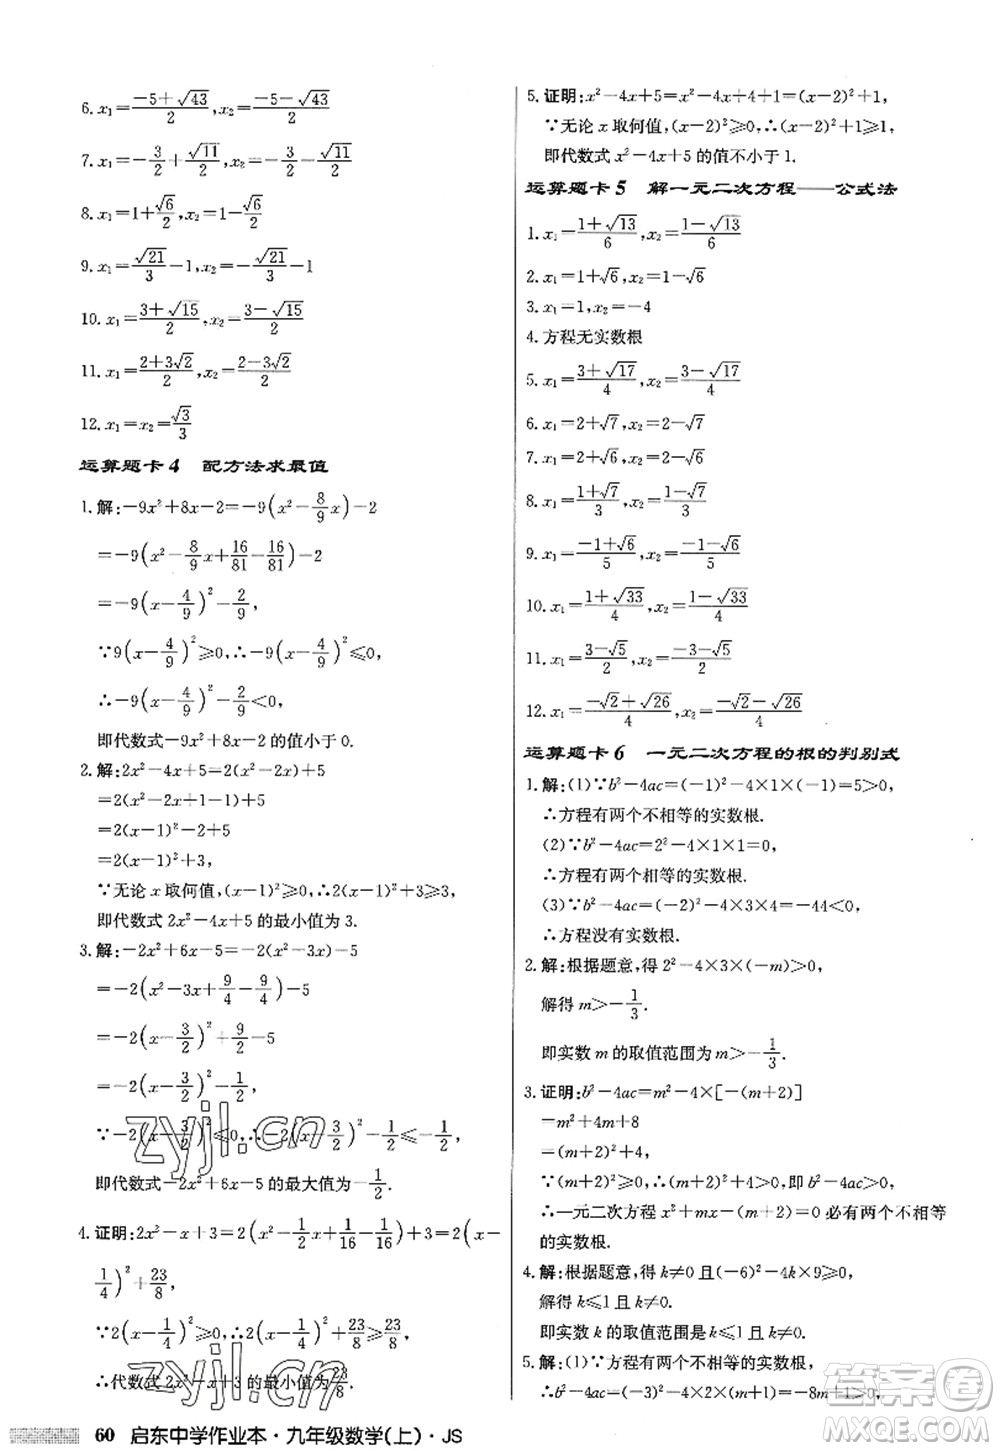 6. x₁=(-5+√43)/2, x₂=(-5-√43)/2
7. x₁=-3/2+√11/2, x₂=-3/2-√11/2
8. x₁=1+√6/2, x₂=1-√6/2
9. x₁=√21/3-1, x₂=-√21/3-1
10. x₁=(3+√15)/2, x₂=(3-√15)/2
11. x₁=(2+3√2)/2, x₂=(2-3√2)/2
12. x₁=x₂=√3/3
运算题卡 4 配方法求最值
1. 解:-9x²+8x-2=-9(x²-8/9x)-2
=-9(x²-8/9x+16/81-16/81)-2
=-9(x-4/9)²-2/9,
∵9(x-4/9)²≥0,∴-9(x-4/9)²≤0,
∴-9(x-4/9)²-2/9<0,
即代数式-9x²+8x-2 的值小于 0.
2. 解:2x²-4x+5=2(x²-2x)+5
=2(x²-2x+1-1)+5
=2(x-1)²-2+5
=2(x-1)²+3,
∵无论 x 取何值,(x-1)²≥0,∴2(x-1)²+3≥3,
即代数式 2x²-4x+5 的最小值为 3.
3. 解:-2x²+6x-5=-2(x²-3x)-5
=-2(x²-3x+9/4-9/4)-5
=-2(x-3/2)²+9/2-5
=-2(x-3/2)²-1/2,
∵-2(x-3/2)²≤0,∴-2(x-3/2)²-1/2≤-1/2,
即代数式-2x²+6x-5 的最大值为-1/2.
4. 证明:2x²-x+3=2(x²-1/2x+1/16-1/16)+3=2(x-
1/4)²+23/8,
∵2(x-1/4)²≥0,∴2(x-1/4)²+23/8≥23/8,
∴代数式 2x²-x+3 的最小值为23/8.
60 启东中学作业本·九年级数学(上)·JS
5. 证明:x²-4x+5=x²-4x+4+1=(x-2)²+1,
∵无论 x 取何值,(x-2)²≥0,∴(x-2)²+1≥1,
即代数式 x²-4x+5 的值不小于 1.
运算题卡 5 解一元二次方程——公式法
1. x₁=(1+√13)/6, x₂=(1-√13)/6
2. x₁=1+√6, x₂=1-√6
3. x₁=1, x₂=-4
4. 方程无实数根
5. x₁=(3+√17)/4, x₂=(3-√17)/4
6. x₁=2+√7, x₂=2-√7
7. x₁=2+√7, x₂=2-√7
8. x₁=(1+√7)/3, x₂=(1-√7)/3
9. x₁=(-1+√6)/5, x₂=(-1-√6)/5
10. x₁=(1+√33)/4, x₂=(1-√33)/4
11. x₁=(-3+√5)/2, x₂=(-3-√5)/2
12. x₁=(-√2+√26)/4, x₂=(-√2-√26)/4
运算题卡 6 一元二次方程的根的判别式
1. 解:(1)∵b²-4ac=(-1)²-4×1×(-1)=5>0,
∴方程有两个不相等的实数根.
(2)∵b²-4ac=2²-4×1×1=0,
∴方程有两个相等的实数根.
(3)∵b²-4ac=(-2)²-4×3×4=-44<0,
∴方程没有实数根.
2. 解:根据题意,得 2²-4×3×(-m)>0,
解得 m>-1/3.
即实数 m 的取值范围为 m>-1/3.
3. 证明:b²-4ac=m²-4×[-(m+2)]
=m²+4m+8
=(m+2)²+4,
∵(m+2)²≥0,∴(m+2)²+4>0,即 b²-4ac>0,
∴一元二次方程 x²+mx-(m+2)=0 必有两个不相等
的实数根.
4. 解:根据题意,得 k≠0 且(-6)²-4k×9≥0,
解得 k≤1 且 k≠0.
即实数 k 的取值范围为 k≤1 且 k≠0.
5. 解:(1)∵方程有两个不相等的实数根,
∴b²-4ac=(-2)²-4×1×(2m-1)=-8m+8>0,
zyjl.cn
zyjl.cn
答案圈
MXQE.COM